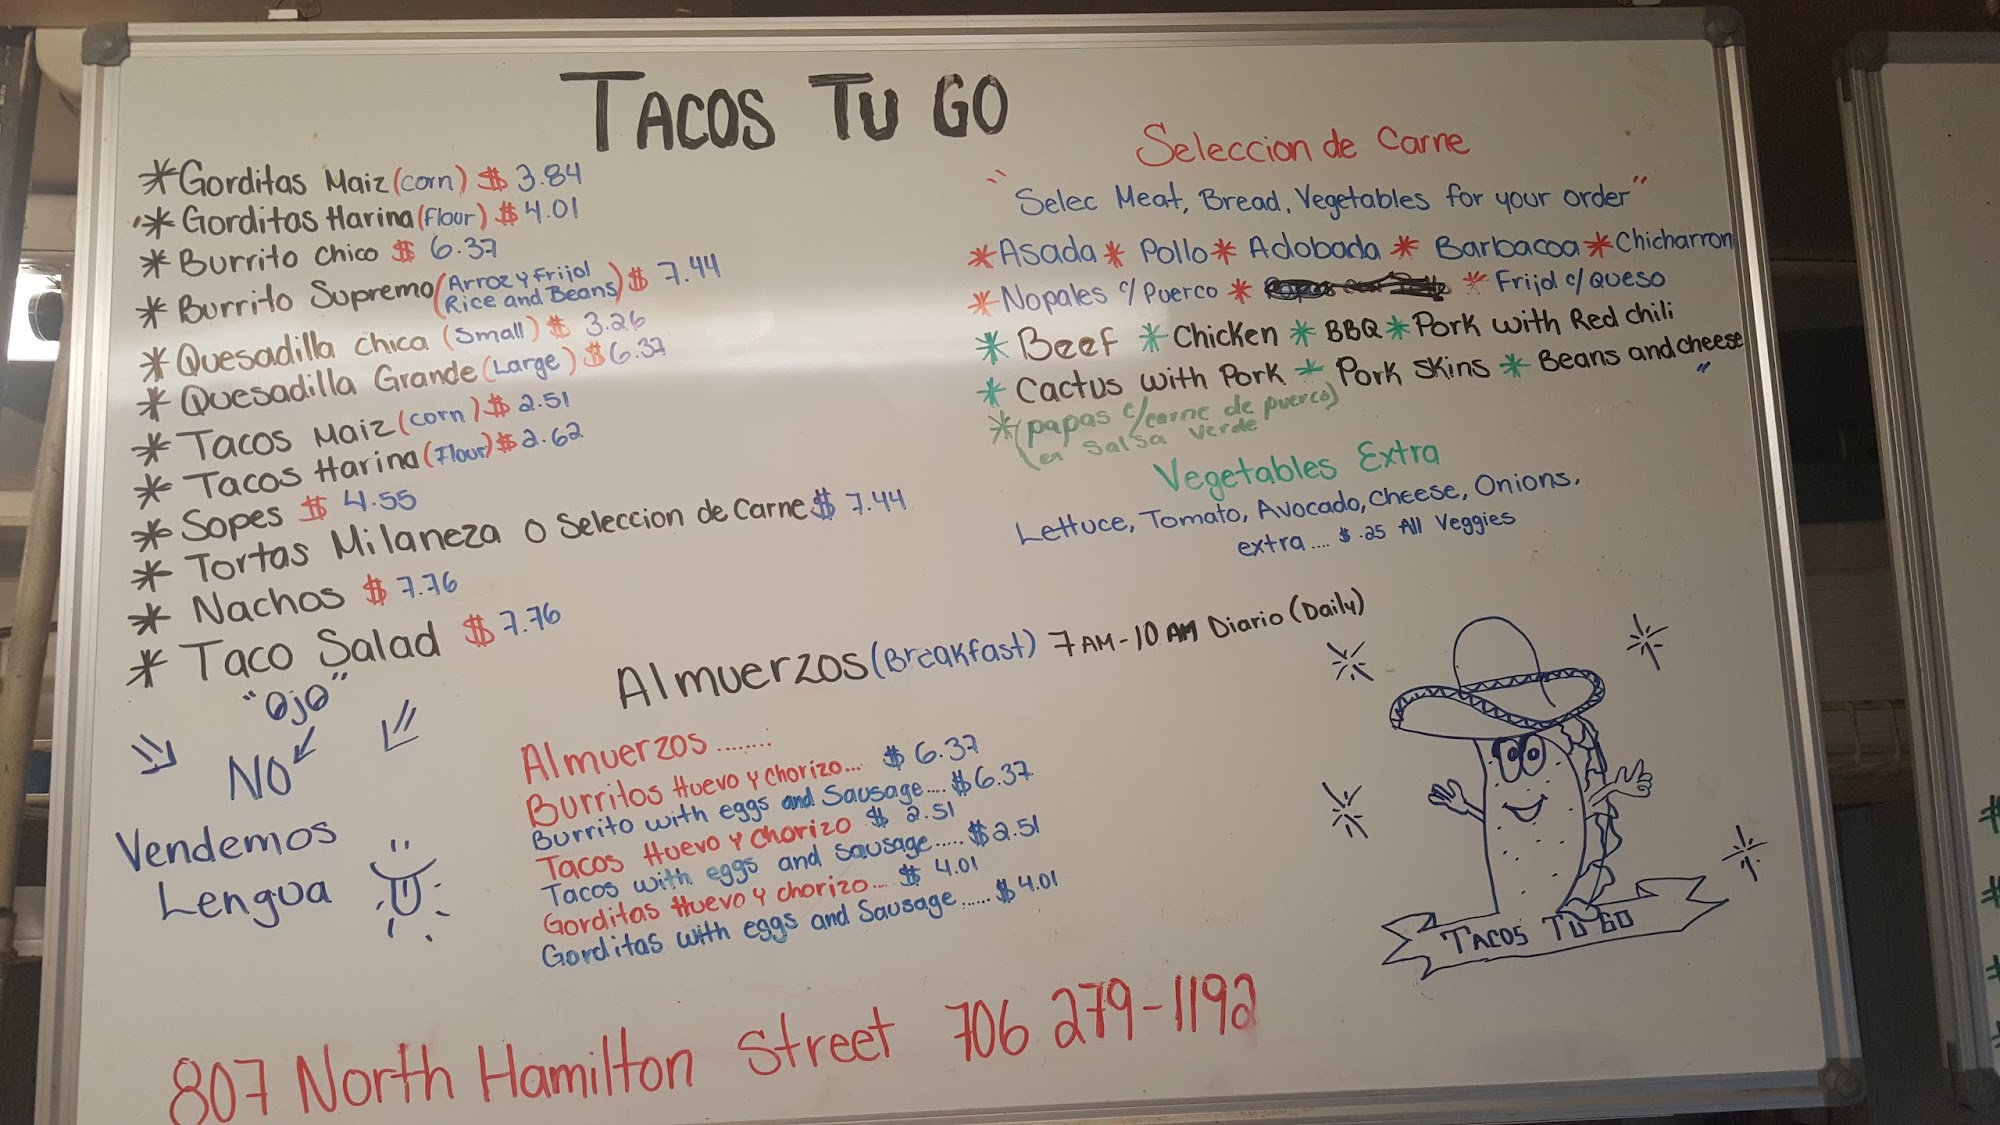 TACOS TU GO
*Gorditas Maiz (corn) $ 3.84
*Gorditas Harina (Flour) $ 4.01
*Burrito chico $ 6.37
*Burrito Supremo (Arroz y Frijol Rice and Beans) $ 7.44
*Quesadilla chica (Small) $ 3.26
*Quesadilla Grande (Large) $ 6.37
*Tacos Maiz (corn) $ 2.51
*Tacos Harina (Flour) $ 2.62
*Sopes $ 4.55
*Tortas Milaneza o Seleccion de Carne $ 7.44
*Nachos $ 7.76
*Taco Salad $ 7.76
"Ojo"
NO
Vendemos
Lengua
Seleccion de Carne
"Selec Meat, Bread, Vegetables for your order"
*Asada * Pollo * Adobada * Barbacoa * Chicharron
*Nopales c/ Puerco * * Frijol c/ Queso
*Beef * Chicken * BBQ * Pork with Red chili
*Cactus with Pork * Pork Skins * Beans and cheese"
*(papas c/ carne de puerco)
(en Salsa verde
Vegetables Extra
Lettuce, Tomato, Avocado, Cheese, Onions,
extra.... $ .25 All Veggies
Almuerzos (Breakfast) 7 AM - 10 AM Diario (Daily)
Almuerzos........
Burritos Huevo y chorizo... $ 6.37
Burrito with eggs and Sausage.... $ 6.37
Tacos Huevo y chorizo $ 2.51
Tacos with eggs and sausage..... $ 2.51
Gorditas Huevo y chorizo.... $ 4.01
Gorditas with eggs and Sausage...... $ 4.01
TACOS TU GO
807 North Hamilton Street 706 279-1192